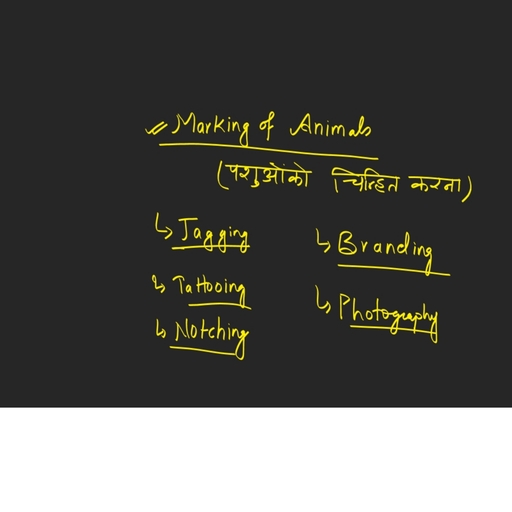 Marking of Animals
(पशुओंको चिन्हित करना)
Tagging
Tattooing
Notching
Branding
Photography